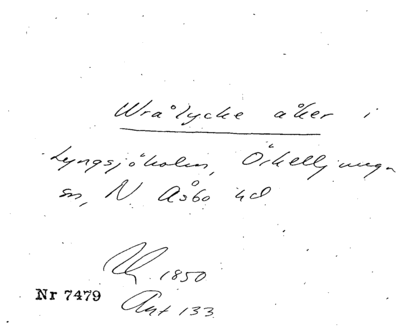 Wrålycke åker i
Lyngsjöholm, Örkelljunga
sn, N Åsbo hd
1850
Nr 7479
Akt 133